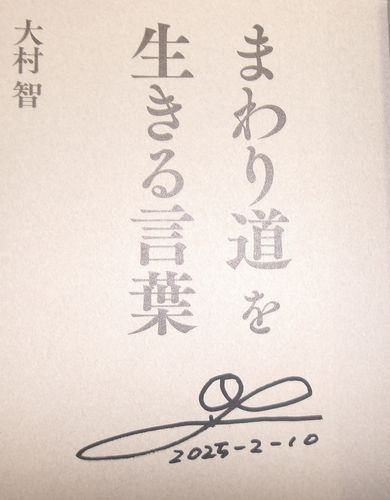 まわり道を
生きる言葉
大村智
2025-2-10